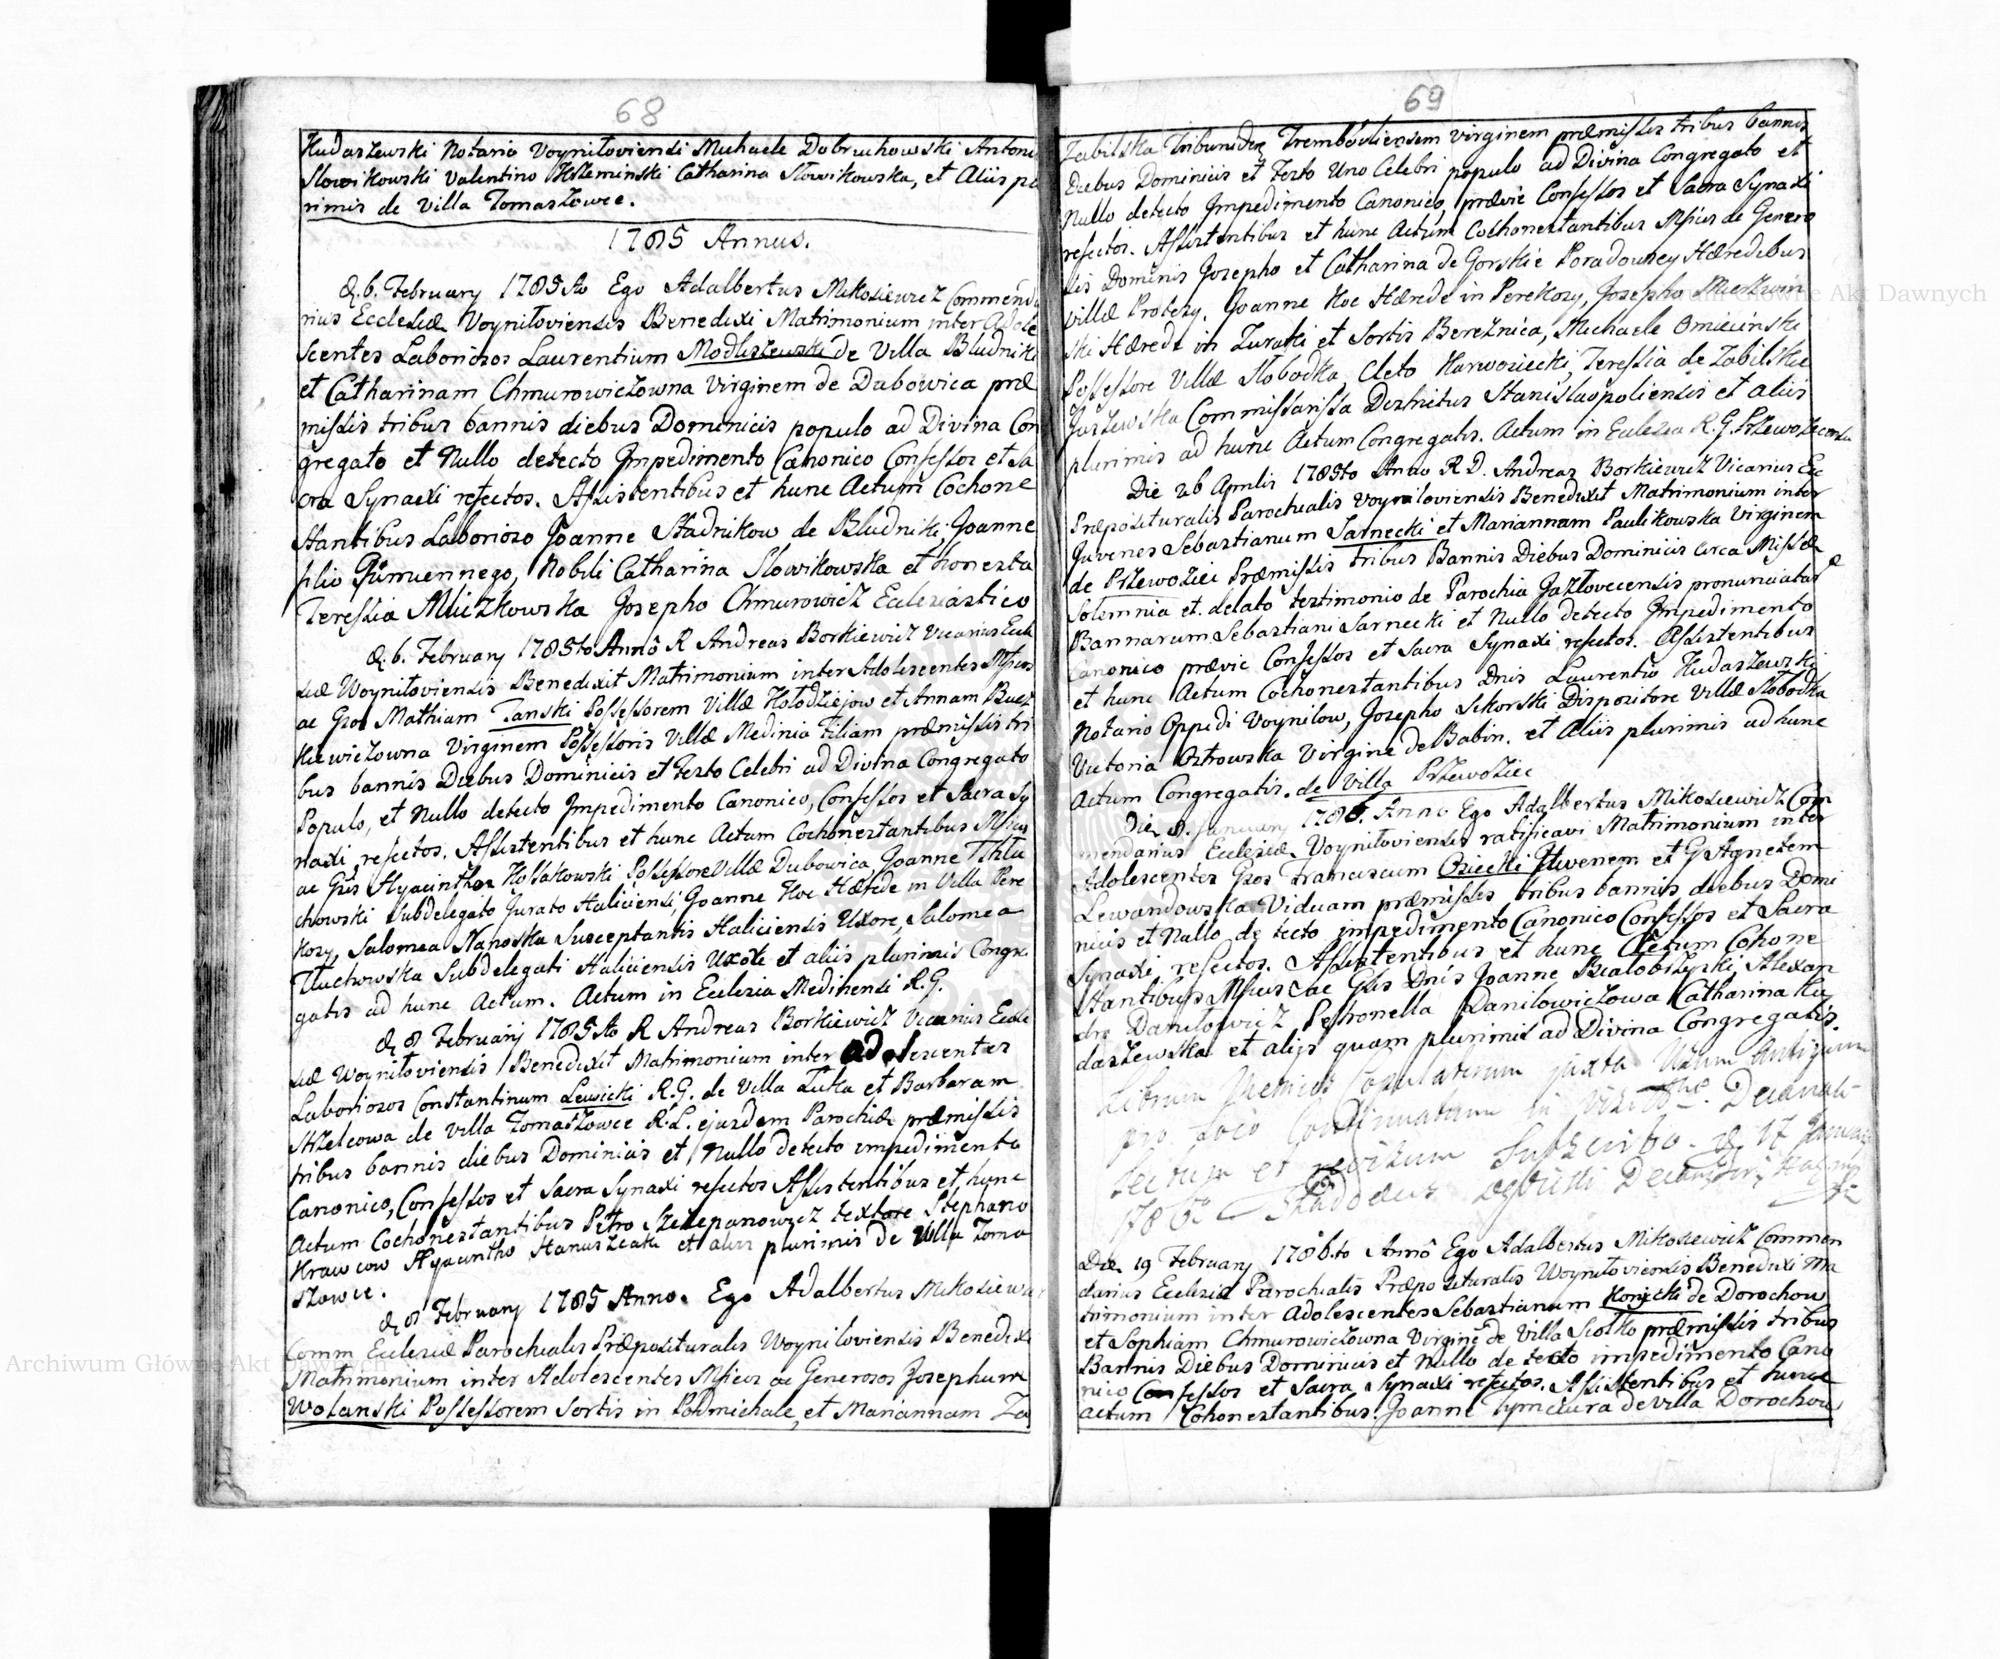 68
Kudaszewski Notario Voyniloviensi Michaele Dobruchowski Antoni
Slowikowski Valentino Catharina Slowikowska, et Aliis plu
rimis de Villa Tomaszowce.
1785 Annus.
d. 6. February 1785to Ego Adalbertus Mikosiewicz Commenda
rius Ecclesiæ Voyniloviensis Benedixi Matrimonium inter Adole
scentes Laboriosos Laurentium Modliszewski de Villa Bludniki
et Catharinam Chmurowiczowna Virginem de Dubowica præ
missis tribus bannis diebus Dominicis populo ad Divina Con
gregato et Nullo detecto Impedimento Canonico Confessos et Sa
cra Synaxi refectos. Assistentibus et hunc Actum Cochone
stantibus Laborioso Joanne Stadnikow de Bludniki, Joanne
filio Nobili Catharina Slowikowska et honesta
Teressia Miczkowska Josepho Chmurowicz Ecclesiastico
d. 6. February 1785to Annô R Andreas Borkiewicz Vicarius Eccle
siæ Woyniloviensis Benedixit Matrimonium inter Adolescentes Mficos
ac Gsos Mathiam Tanski Possessorem Villæ Holodziejow et Annam Bucz
kiewiczowna Virginem Possessoris Villæ Medinia Filiam præmissis tri
bus bannis Diebus Dominicis et festo Celebri ad Divina Congregato
Populo, et Nullo detecto Impedimento Canonico, Confessos et Sacra Sy
naxi refectos. Assistentibus et hunc Actum Cochonestantibus Mficis
ac Gsis Hyacintho Kossakowski Possessore Villæ Dubowica Joanne Thlu
chowski Subdelegato Jurato Haliciensi, Joanne Hoc Hærede in Villa Pere
kosy, Salomea Nanoska Susceptantis Haliciensis Uxore, Salomea
Tluchowska Subdelegati Haliciensis Uxore et aliis plurimis Congre
gatis ad hunc Actum. Actum in Ecclesia Medinensi R.G.
d. 8 February 1785to R Andreas Borkiewicz Vicarius Eccle
siæ Woyniloviensis Benedixit Matrimonium inter adolescentes
Laboriosos Constantinum Lewicki R.G. de Villa Luka et Barbaram
Strzelcowa de villa Tomaszowce R.L. ejusdem Parochiæ præmissis
tribus bannis diebus Dominicis et Nullo detecto impedimento
Canonico, Confessos et Sacra Synaxi refectos Assistentibus et hunc
Actum Cochonestantibus Petro Szczepanowicz textore Stephano
Krawcow Hyacintho et aliis plurimis de Villa Toma
szowce.
d. 8 February 1785 Anno. Ego Adalbertus Mikosiewicz
Comm Ecclesiæ Parochialis Præposituralis Woyniloviensis Benedixi
Matrimonium inter Adolescentes Mficos ac Generosos Josephum
Wolanski Possessorem Sortis in Podmichale, et Mariannam Za
69
Zabilska Trembovliensem Virginem præmissis tribus bannis
Diebus Dominicis et Festo Uno Celebri populo ad Divina Congregato et
Nullo detecto Impedimento Canonico, prævie Confessos et Sacra Synaxi
refectos. Assistentibus et hunc Actum Cochonestantibus Mficis de Genero
sis Dominis Josepho et Catharina de Gorskie Poradowscy Hæredibus
Villæ Protesy. Joanne Hoc Hærede in Perekosy, Josepho
ski Hærede in Zuraki et Sortis Bereznica, Michaele Omiecinski
Possessore Villæ Slobodka, Cleto Karwosiecki, Teressia de Zabilskie
Commissarissa Districtus Stanislaopoliensis et aliis
plurimis ad hunc Actum Congregatis. Actum in Ecclesia R.G.
Die 26 Aprilis 1785to Anno R D. Andreas Borkiewicz Vicarius Ecc
Præposituralis Parochialis Voyniloviensis Benedixit Matrimonium inter
Juvenes Sebastianum Sarnecki et Mariannam Paulikowska Virginem
de Przewoziec Præmissis tribus Bannis Diebus Dominicis circa Missæ
Solemnia et delato testimonio de Parochia Jazlovecensis pronunciatar
Bannarum Sebastiani Sarnecki et Nullo detecto Impedimento
Canonico prævie Confessos et Sacra Synaxi refectos. Assistentibus
et hunc Actum Cochonestantibus Dnis Laurentio Kudaszewski
Notario Oppidi Voynilow, Josepho Sikorski Dispositore Villæ Slobodka
Victoria Ostrowska Virgine de Babin. et Aliis plurimis ad hunc
Actum Congregatis. de Villa Przewoziec
Die 8. January 1786. Anno Ego Adalbertus Mikosiewicz Com
mendarius Ecclesiæ Voyniloviensis ratificavi Matrimonium inter
Adolescentes Gsos Franciscum Osiecki Juvenem et G Agnetem
Lewandowska Viduam præmissis tribus bannis diebus Domi
nicis et Nullo de tecto impedimento Canonico Confessos et Sacra
Synaxi refectos. Assistentibus et hunc Actum Cohone
stantibus Mficis ac Gsis Dnis Joanne Bialobrzeski, Alexan
dro Danilowicz Petronella Danilowiczowa Catharina Ku
daszewska et alijs quam plurimis ad Divina Congregatis.
Librum Copulatorum juxta Usum Antiquum
pro Loco Continuatum in Decanali
Lectum et revisum Subscribo d. 17 January
1786to
Die 19 February 1786.to Annô Ego Adalbertus Mikosiewicz Commen
darius Ecclesiæ Parochialis Præposituralis Woyniloviensis Benedixi Ma
trimonium inter Adolescentes Sebastianum Konicki de Dorochow
et Sophiam Chmurowiczowna Virginê de Villa Siolko præmissis tribus
Bannis Diebus Dominicis et Nullo de tecto impedimento Cano
nico Confessos et Sacra Synaxi refectos. Assistentibus et hunc
actum Cohonestantibus. Joanne Tymciura de Villa Dorochow
Archiwum Główne Akt Dawnych
Archiwum Główne Akt Dawnych